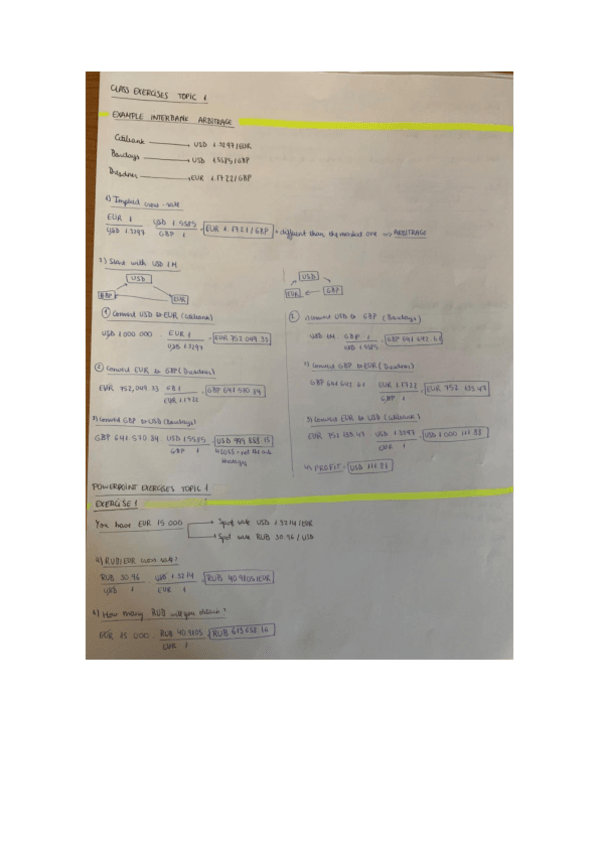 CLASS EXERCISES TOPIC 1
EXAMPLE INTERBANK ARBITRAGE
Citibank → USD 1.3297/EUR
Barclays → USD 1.5585/GBP
Dresdner → EUR 1.1722/GBP
1) Implied cross-rate
EUR 1 / USD 1.3297 · USD 1.5585 / GBP 1 = EUR 1.1721/GBP → different than the market one => ARBITRAGE
2) Start with USD 1M
USD
GBP EUR
① Convert USD to EUR (Citibank)
USD 1 000 000 · EUR 1 / USD 1.3297 = EUR 752 049.33
② Convert EUR to GBP (Dresdner)
EUR 752,049.33 · GBP 1 / EUR 1.1722 = GBP 641 570.84
3) Convert GBP to USD (Barclays)
GBP 641 570.84 · USD 1.5585 / GBP 1 = USD 999 888.15
USD
EUR ← GBP
② 1) Convert USD to GBP (Barclays)
USD 1M · GBP 1 / USD 1.5585 = GBP 641 642.61
2) Convert GBP to EUR (Dresdner)
GBP 641 642.61 · EUR 1.1722 / GBP 1 = EUR 752 133.47
3) Convert EUR to USD (Citibank)
EUR 752 133.47 · USD 1.3297 / EUR 1 = USD 1 000 111.88
4) PROFIT = USD 111.88
POWERPOINT EXERCISES TOPIC 1
EXERCISE 1
You have EUR 15 000 → Spot rate USD 1.3214/EUR
→ Spot rate RUB 30.96/USD
a) RUB/EUR cross rate?
RUB 30.96 / USD 1 · USD 1.3214 / EUR 1 = RUB 40.9105/EUR
b) How many RUB will you obtain?
EUR 15 000 · RUB 40.9105 / EUR 1 =